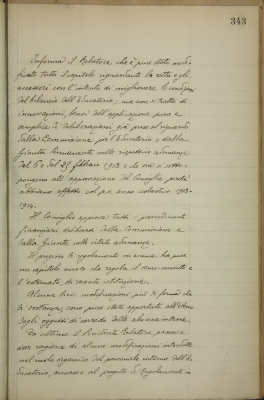 343
Informa il Relatore che è pure stato modi-
ficato tutto il capitolo riguardante la retta e gli
accessori con l'intento di migliorare le condizioni
del bilancio dell'Educatorio, ma non si tratta di
innovazioni, bensì dell'applicazione pura e
semplice di deliberazioni già prese al riguardo
dalla Commissione per l'Educatorio e dalla
Giunta Permanente nelle rispettive adunanze
del 6 e del 25 febbraio 1913 e che ora si sotto-
pongono all'approvazione del Consiglio, perchè
abbiano effetto col p.v. anno scolastico 1913-
1914.
Il Consiglio approva tutti i provvedimenti
finanziari deliberati dalla Commissione e
dalla Giunta nelle citate adunanze.
Il progetto di regolamento in esame ha pure
un capitolo nuovo che regola il semi-convitto e
l'esternato, di recente istituzione.
Alcune lievi modificazioni, più di forma che
di sostanza, sono pure state apportate all'elenco
degli oggetti di corredo delle alunne interne.
Da ultimo il Presidente Relatore, passa a
dar ragione di alcune modificazioni introdotte
nel ruolo organico del personale interno dell'E-
ducatorio, annesso al progetto di Regolamento in